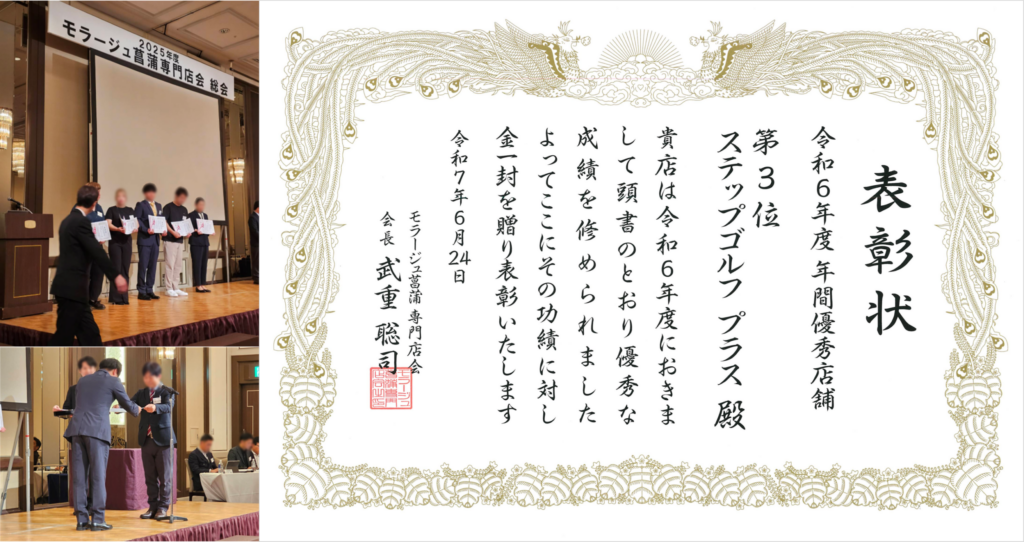 2025年度
モラージュ菖蒲専門店会 総会
表彰状
令和6年度 年間優秀店舗
第3位
ステップゴルフ プラス 殿
貴店は令和6年度におきま
して頭書のとおり優秀な
成績を修められました
よってここにその功績に対し
金一封を贈り表彰いたします
令和7年6月24日
モラージュ菖蒲 専門店会
会長 武重 聡司